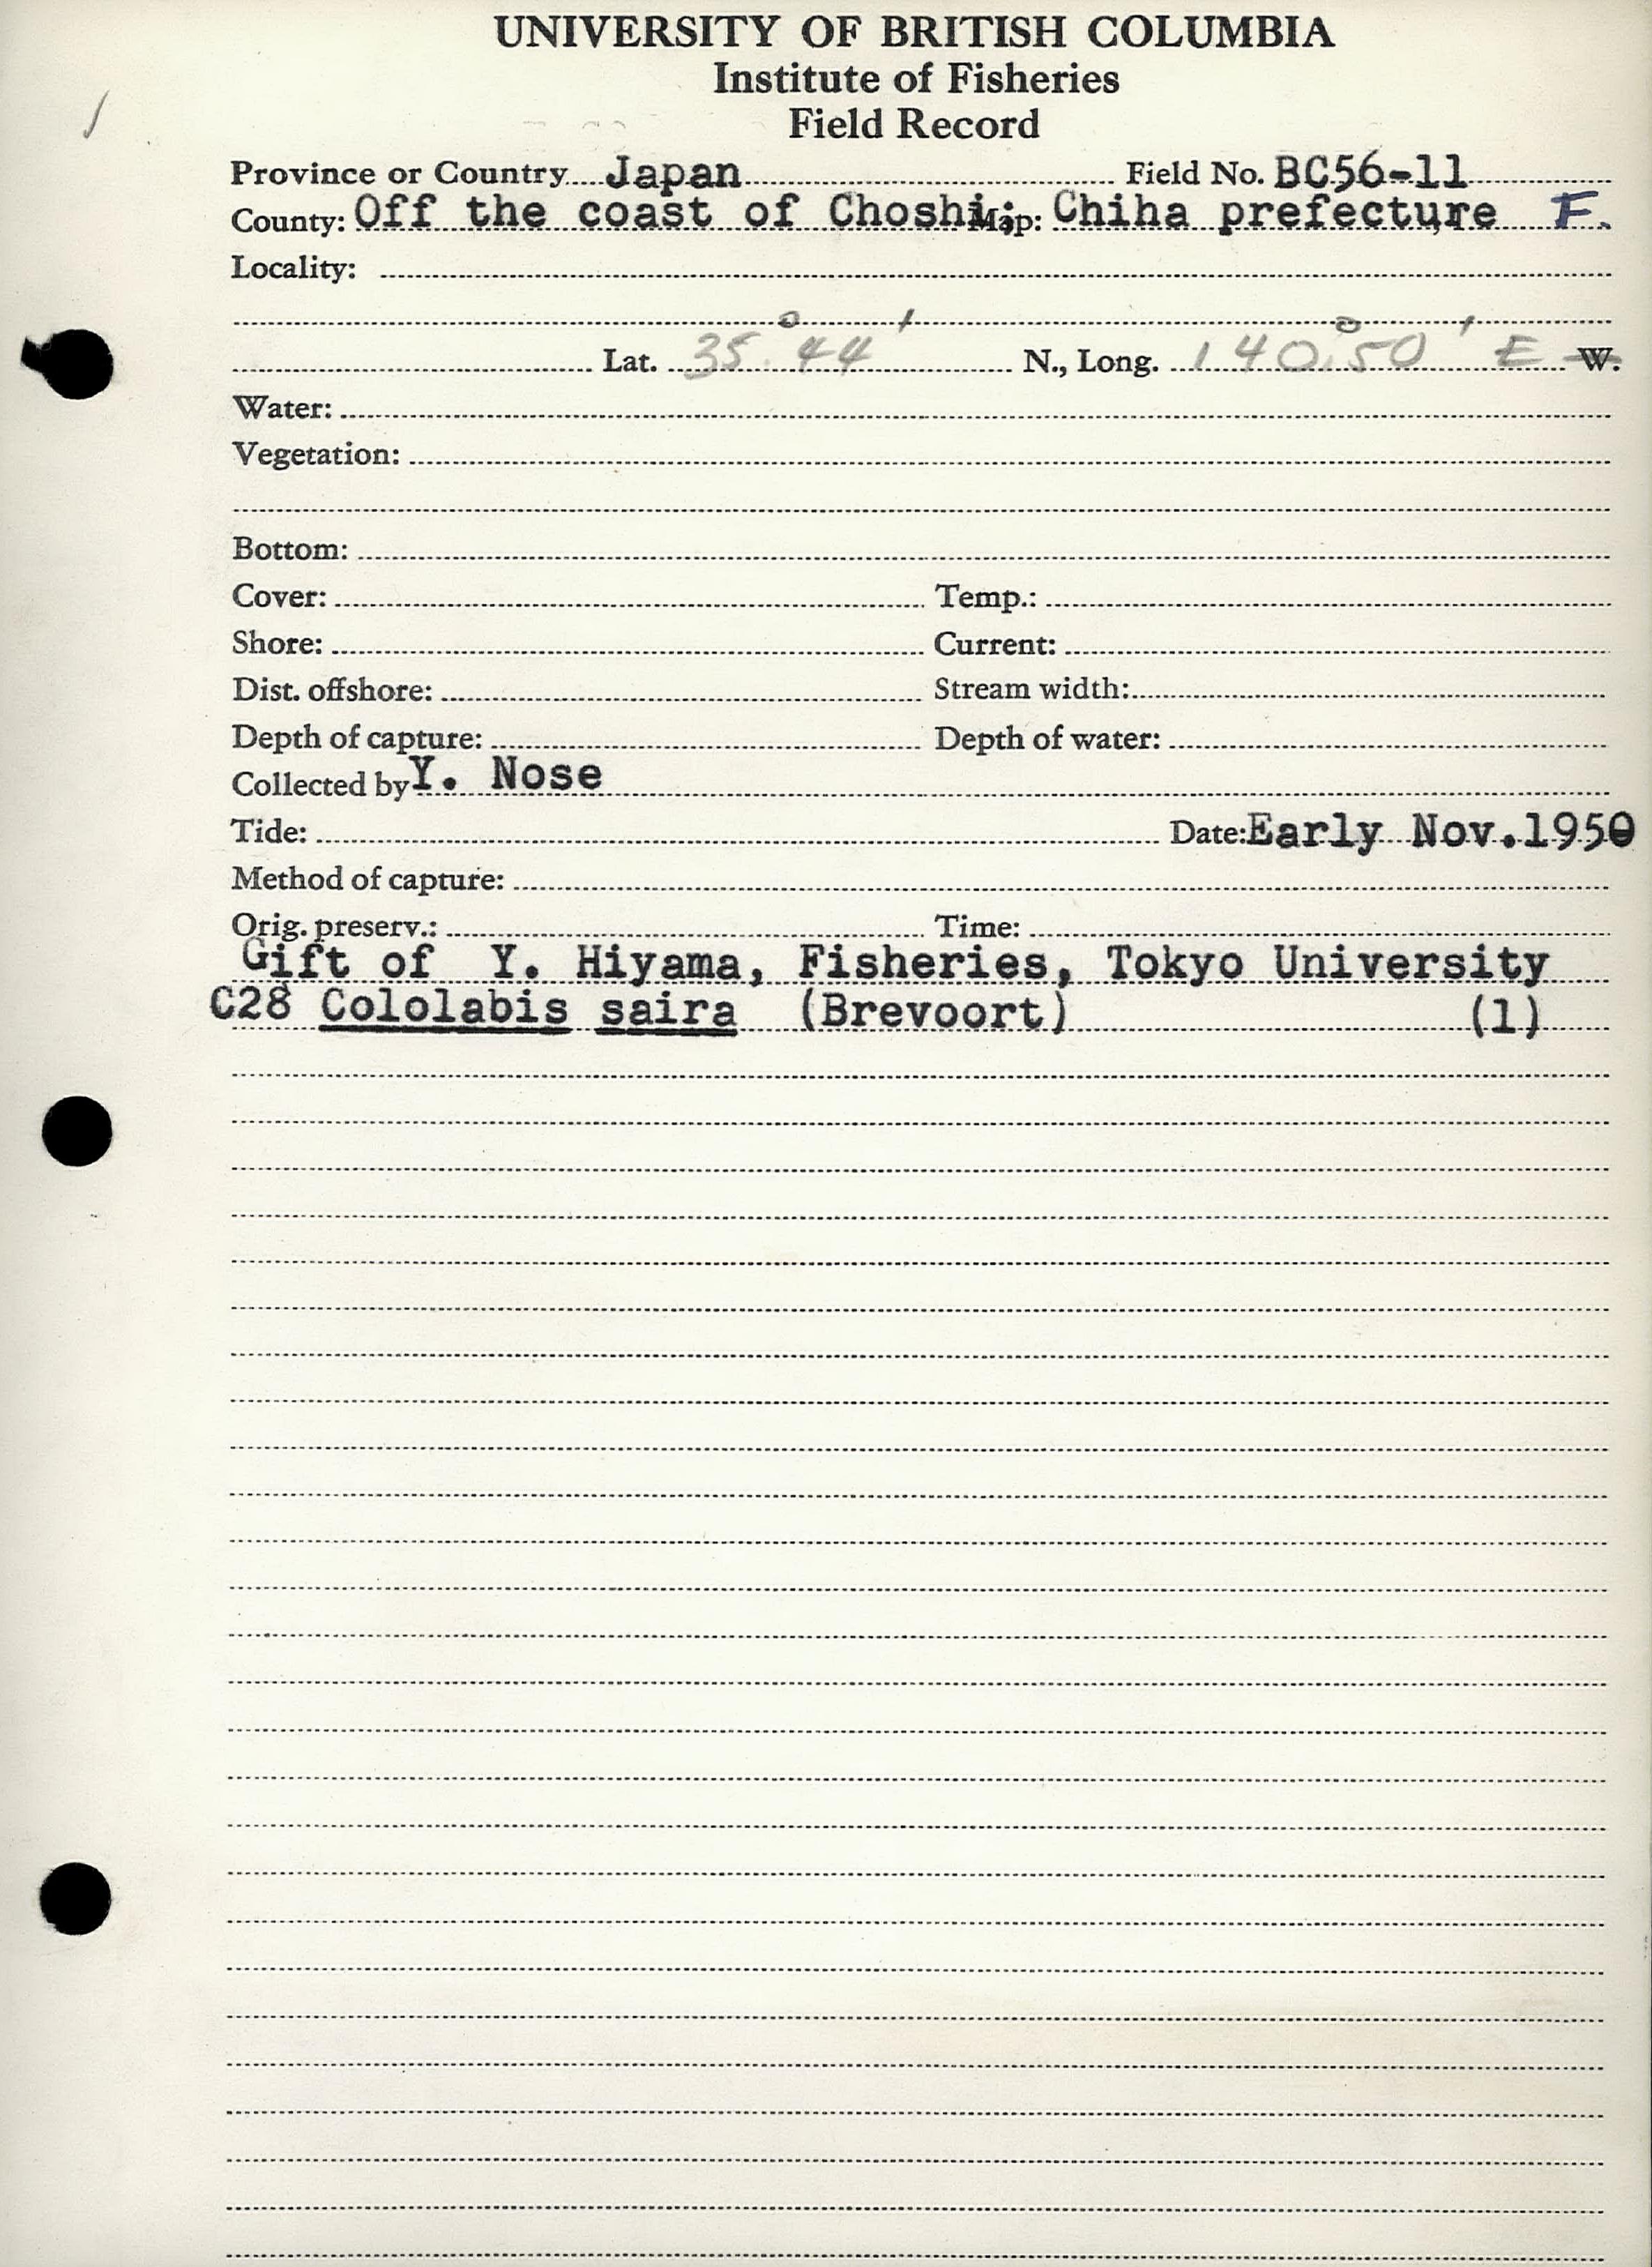 UNIVERSITY OF BRITISH COLUMBIA
Institute of Fisheries
Field Record
Province or Country Japan Field No. BC56-11
County: Off the coast of Choshi; Map: Chiha prefecture F.
Locality:
Lat. 35° 44' N., Long. 140° 50' E W.
Water:
Vegetation:
Bottom:
Cover: Temp.:
Shore: Current:
Dist. offshore: Stream width:
Depth of capture: Depth of water:
Collected by Y. Nose
Tide: Date: Early Nov. 1950
Method of capture:
Orig. preserv.: Time:
Gift of Y. Hiyama, Fisheries, Tokyo University
C28 Cololabis saira (Brevoort) (1)